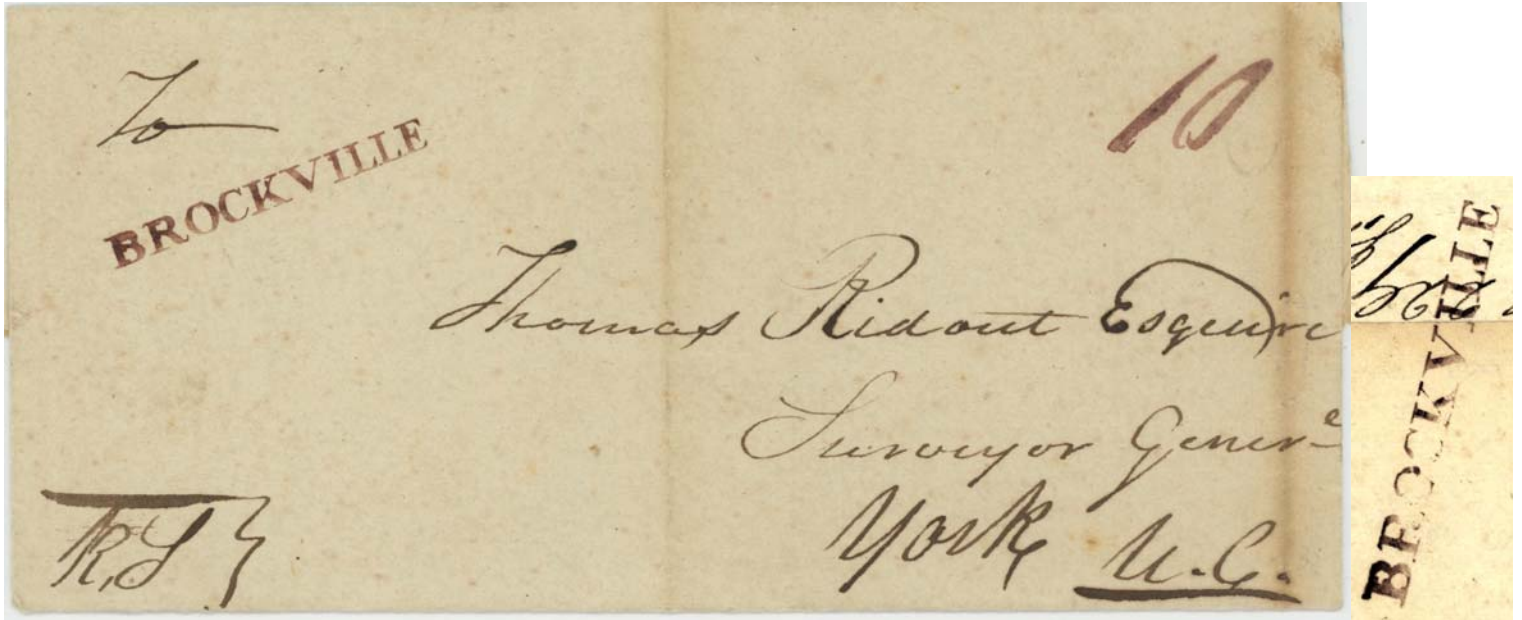 To
10
BROCKVILLE
Thomas Ridout Esquire
Surveyor Gener.l
York U.C.
BROCKVILLE